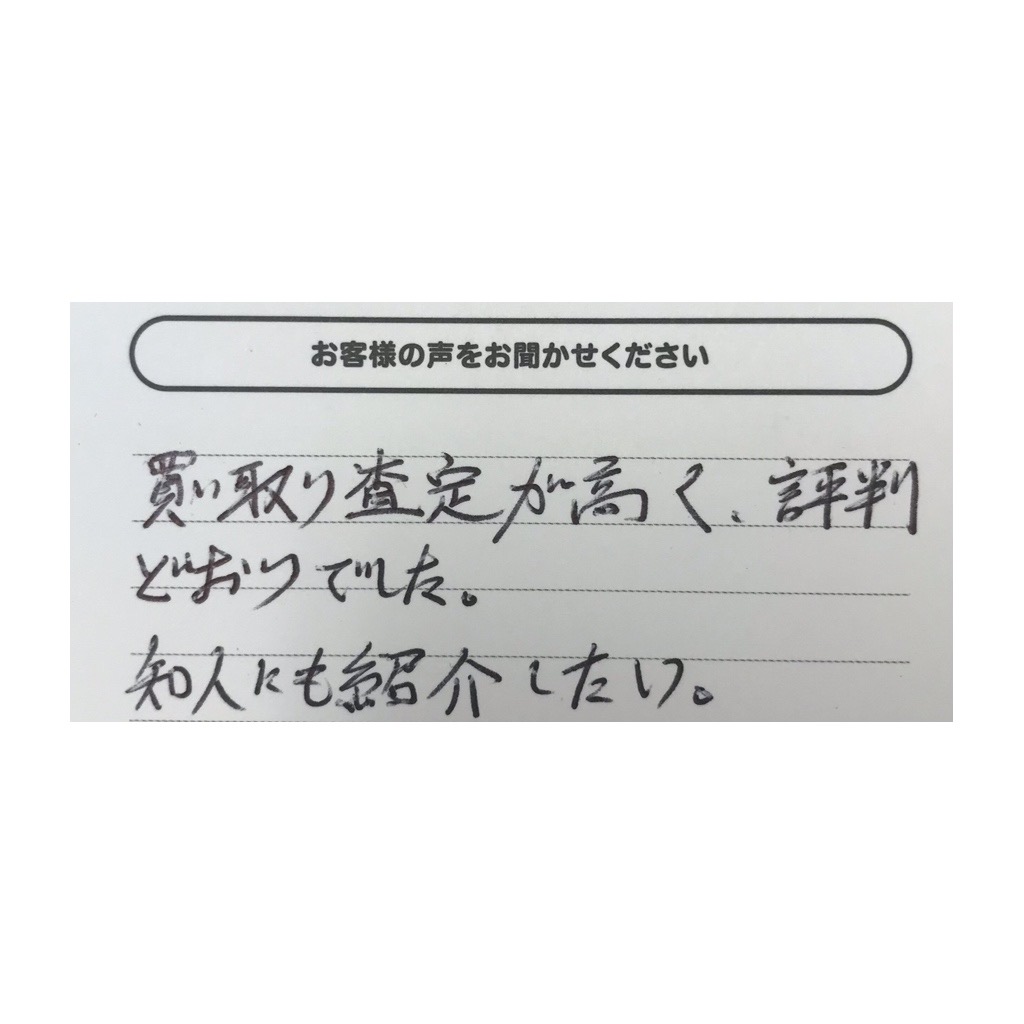 お客様の声をお聞かせください
買い取り査定が高く、評判
どおりでした。
知人にも紹介したい。